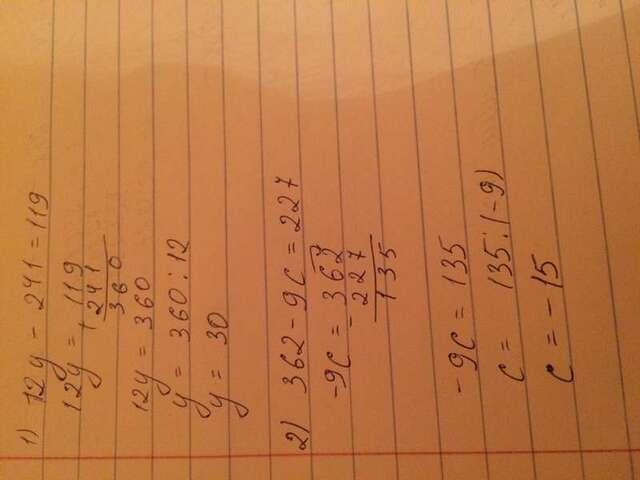 1) 12y - 241 = 119
12y = 119
+ 241
360
12y = 360
y = 360 : 12
y = 30
2) 362 - 9c = 227
-9c = 362
- 227
135
-9c = 135
c = 135 : (-9)
c = -15